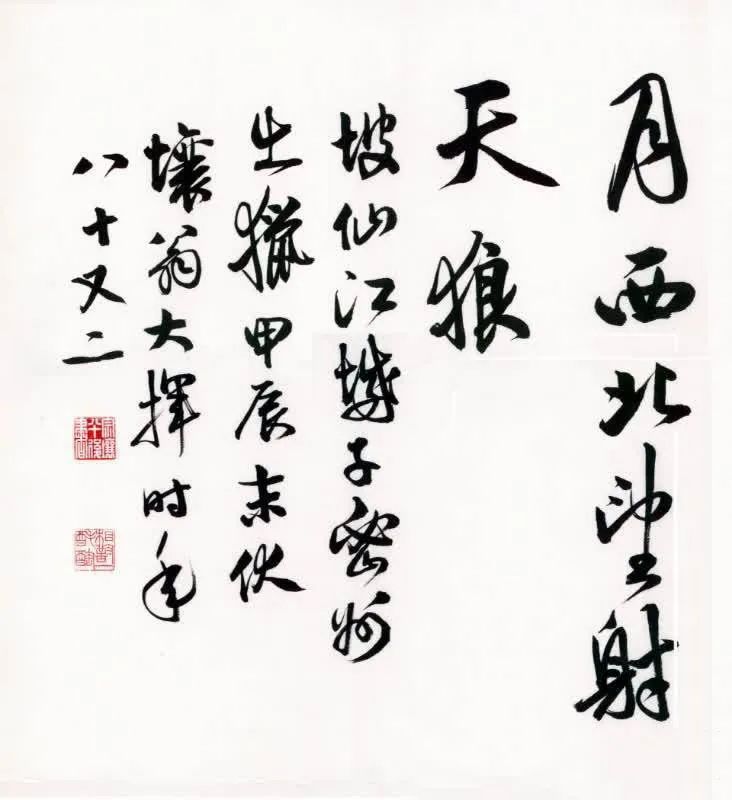 月西北望射
天狼
坡仙江城子密州
出猎甲辰末伏
壤翁大挥时年
八十又二